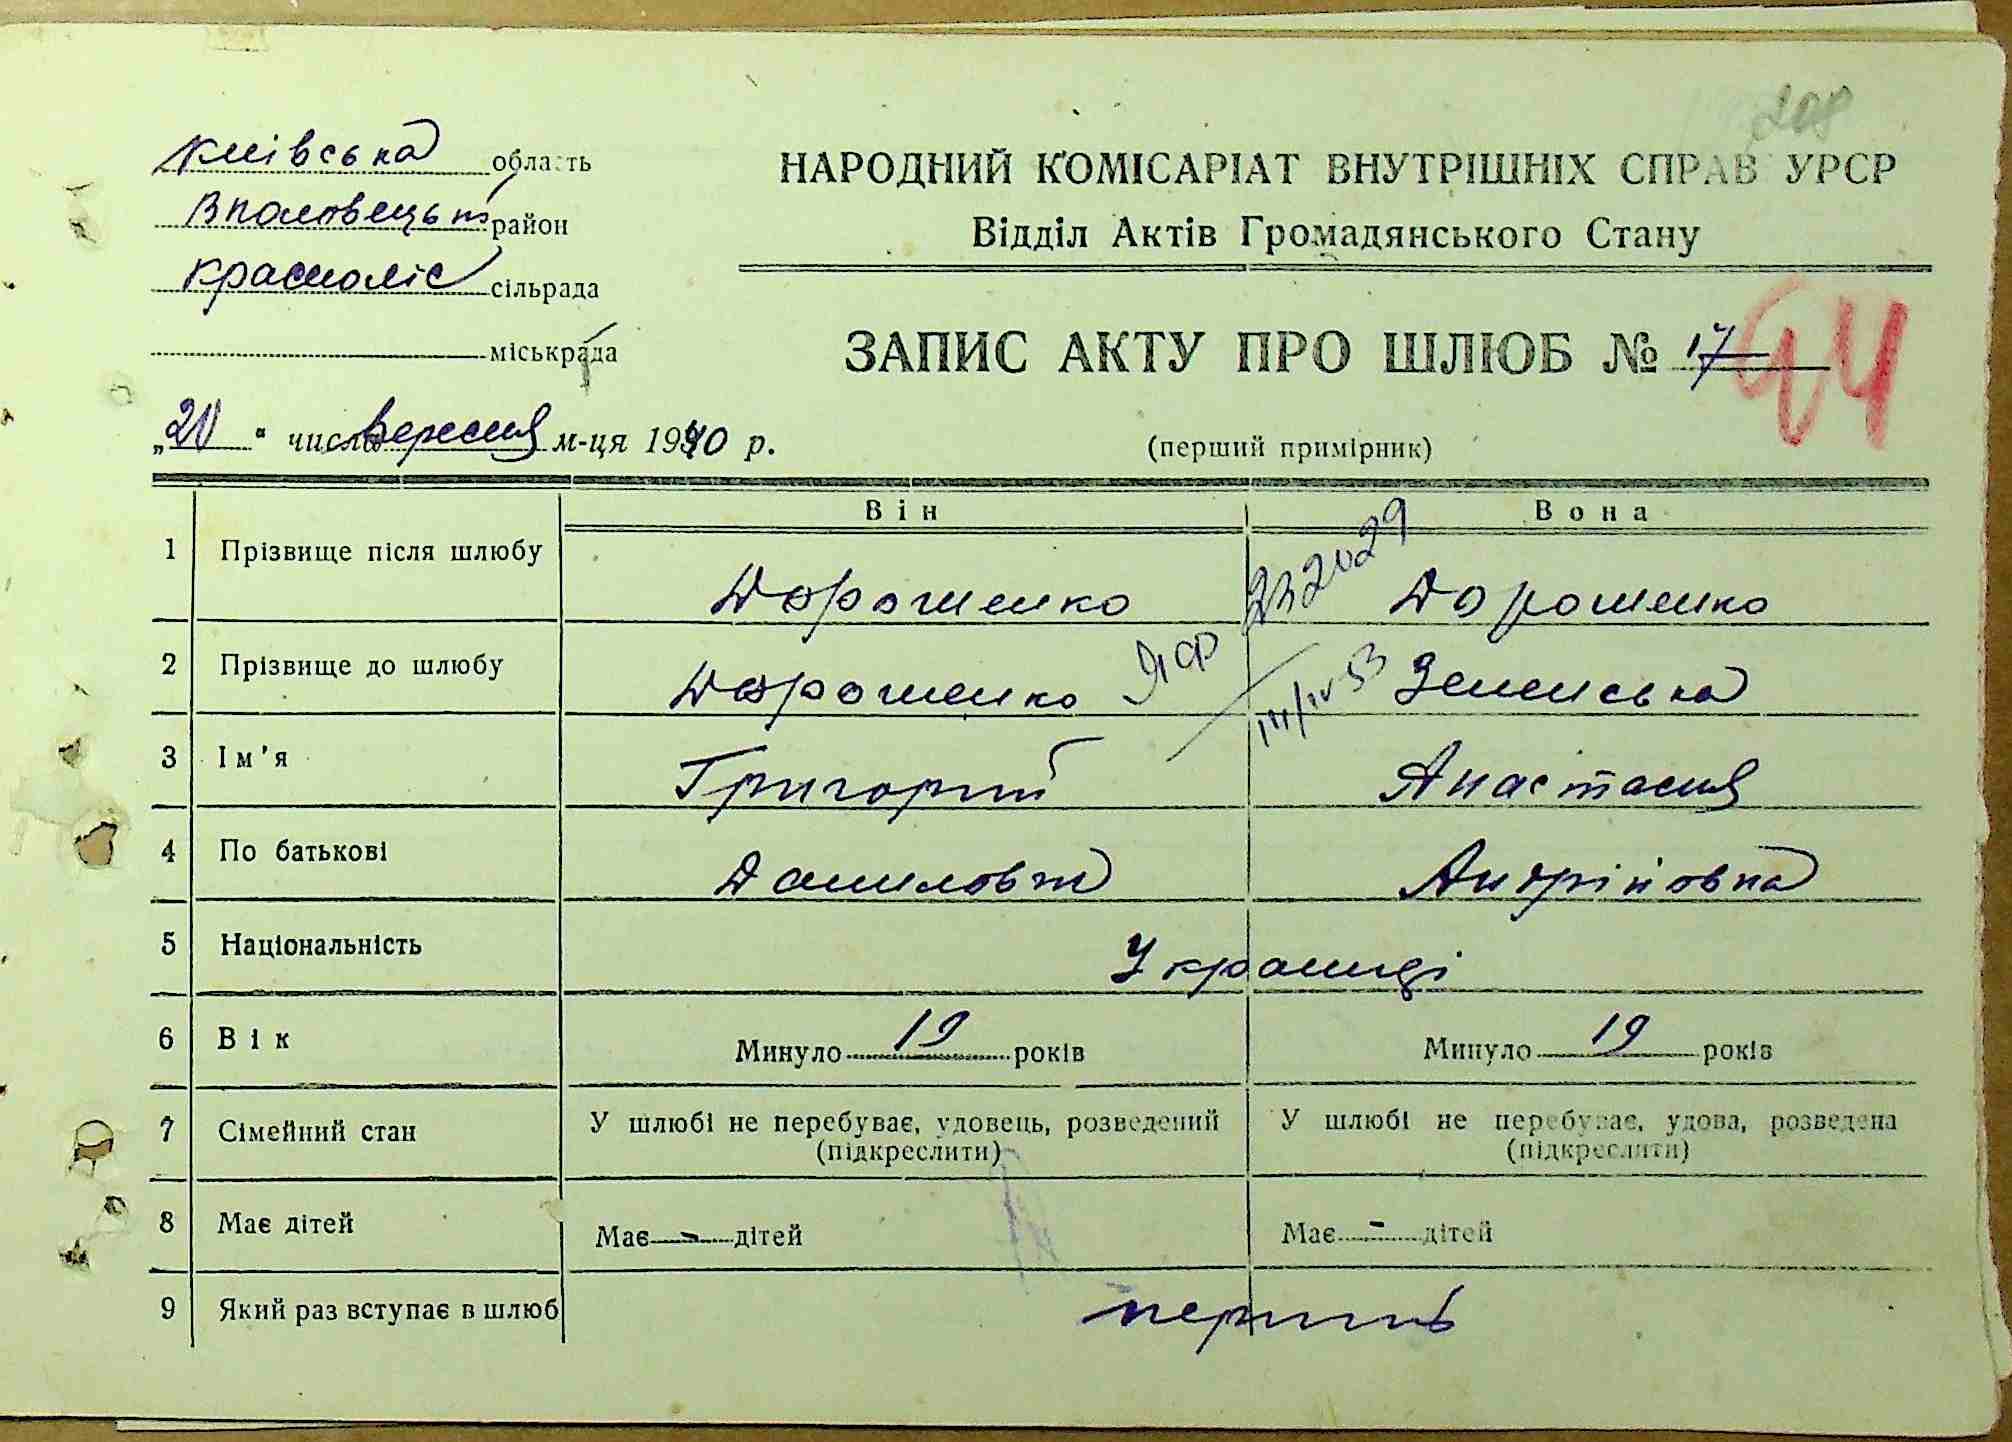 208
Київська область
Вполовецький район
Красноліс сільрада
міськрада
НАРОДНИЙ КОМІСАРІАТ ВНУТРІШНІХ СПРАВ УРСР
Відділ Актів Громадянського Стану
ЗАПИС АКТУ ПРО ШЛЮБ № 17
„20“ числа Вересня м-ця 1940 р.
(перший примірник)
Він Вона
1 Прізвище після шлюбу Дорошенко Дорошенко
2 Прізвище до шлюбу Дорошенко Зеленська
3 Ім'я Григорий Анастасия
4 По батькові Данилович Андріївна
5 Національність Українці
6 Вік Минуло 19 років Минуло 19 років
7 Сімейний стан У шлюбі не перебуває, удовець, розведений У шлюбі не перебуває, удова, розведена
(підкреслити) (підкреслити)
8 Має дітей Має - дітей Має - дітей
9 Який раз вступає в шлюб перший